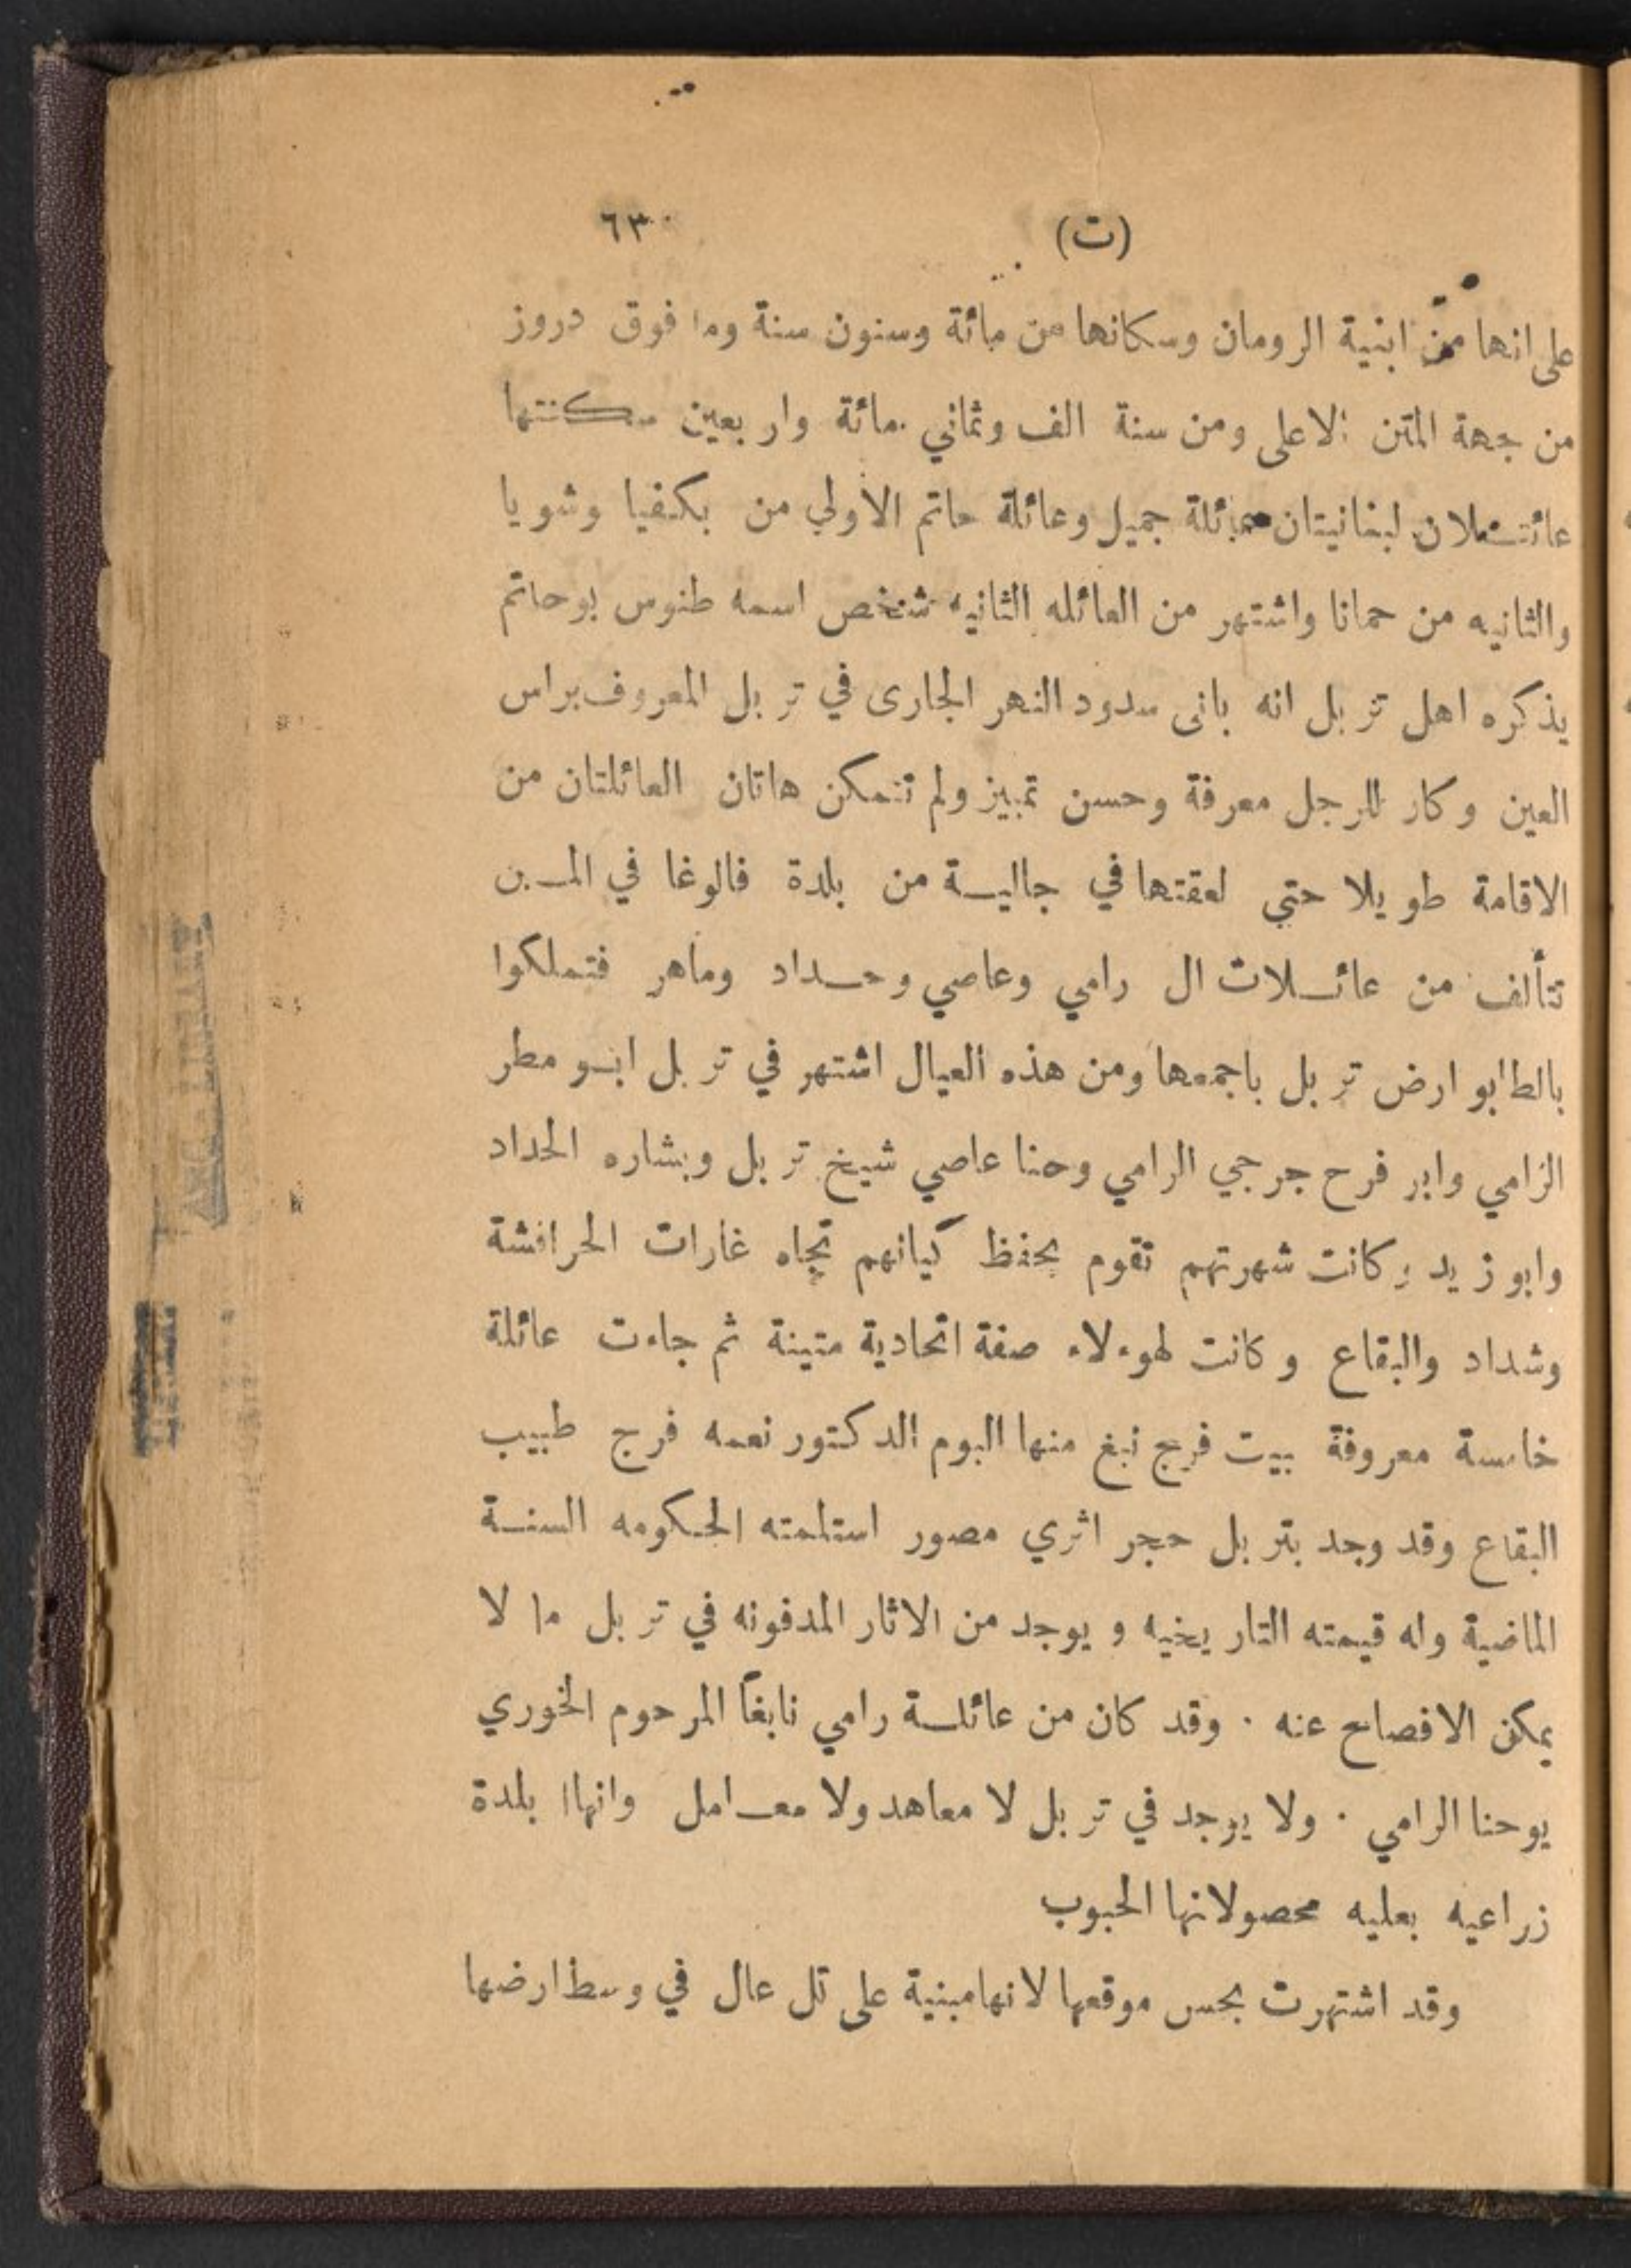 (ت) ٦٣
على انها من ابنية الرومان وسكانها من مائة وستون سنة وما فوق دروز
من جهة المتن الاعلى ومن سنة الف وثماني مائة واربعين سكنتها
عائتسملان لبنانيتان عائلة جميل وعائلة حاتم الاولي من بكفيا وشويا
والثانيه من حمانا واشتهر من العائله الثانيه شخص اسمه طنوس بوحاتم
يذكره اهل تربل انه بانى سدود النهر الجارى في تربل المعروف براس
العين وكار للرجل معرفة وحسن تمييز ولم تتمكن هاتان العائلتان من
الاقامة طويلا حتي لعقتها في جاليسة من بلدة فالوغا في المـن
تتألف من عائسلات ال رامي وعاصي وحسداد وماهر فتملكوا
بالطابو ارض تربل باجمعها ومن هذه العيال اشتهر في تربل ابسو مطر
الرامي وابر فرح جرجي الرامي وحنا عاصي شيخ تربل وبشاره الحداد
وابو زيد وكانت شهرتهم تقوم بحفظ كيانهم تجاه غارات الحرافشة
وشداد والبقاع وكانت لهوءلاء صفة اتحادية متينة ثم جاءت عائلة
خامسة معروفة بيت فرج نبغ منها اليوم الدكتور نعمه فرج طبيب
البقاع وقد وجد بتربل حجر اثري مصور استلمته الحكومه السنسة
الماضية وله قيمته التاريخيه ويوجد من الاثار المدفونه في تربل ما لا
يمكن الافصاح عنه ٠ وقد كان من عائلسة رامي نابغاً المرحوم الخوري
يوحنا الرامي ٠ ولا يوجد في تربل لا معاهد ولا معسامل وانهاا بلدة
زراعيه بعليه محصولاتها الحبوب
وقد اشتهرت بحس موقعها لانها مبنية على تل عال في وسط ارضها